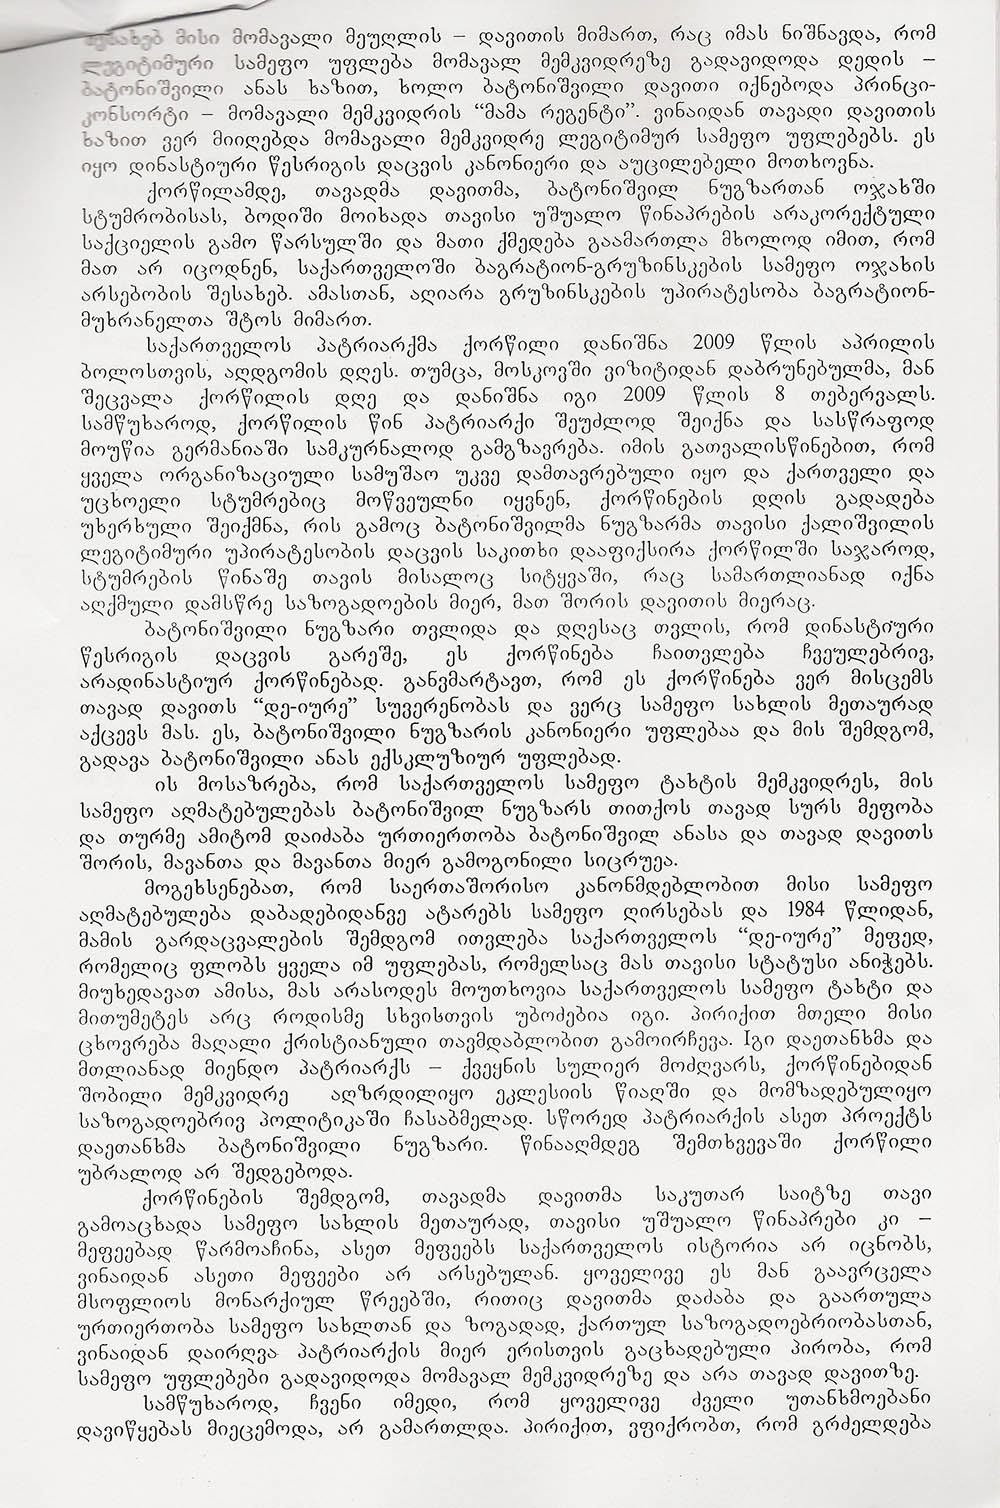 შესახებ მისი მომავალი მეუღლის – დავითის მიმართ, რაც იმას ნიშნავდა, რომ
ლეგიტიმური სამეფო უფლება მომავალ მემკვიდრეზე გადავიდოდა დედის –
ბატონიშვილი ანას ხაზით, ხოლო ბატონიშვილი დავითი იქნებოდა პრინცი-
კონსორტი – მომავალი მემკვიდრის “მამა რეგენტი”. ვინაიდან თავადი დავითის
ხაზით ვერ მიიღებდა მომავალი მემკვიდრე ლეგიტიმურ სამეფო უფლებებს. ეს
იყო დინასტიური წესრიგის დაცვის კანონიერი და აუცილებელი მოთხოვნა.
ქორწილამდე, თავადმა დავითმა, ბატონიშვილ ნუგზართან ოჯახში
სტუმრობისას, ბოდიში მოიხადა თავისი უშუალო წინაპრების არაკორექტული
საქციელის გამო წარსულში და მათი ქმედება გაამართლა მხოლოდ იმით, რომ
მათ არ იცოდნენ, საქართველოში ბაგრატიონ-გრუზინსკების სამეფო ოჯახის
არსებობის შესახებ. ამასთან, აღიარა გრუზინსკების უპირატესობა ბაგრატიონ-
მუხრანელთა შტოს მიმართ.
საქართველოს პატრიარქმა ქორწილი დანიშნა 2009 წლის აპრილის
ბოლოსთვის, აღდგომის დღეს. თუმცა, მოსკოვში ვიზიტიდან დაბრუნებულმა, მან
შეცვალა ქორწილის დღე და დანიშნა იგი 2009 წლის 8 თებერვალს.
სამწუხაროდ, ქორწილის წინ პატრიარქი შეუძლოდ შეიქნა და სასწრაფოდ
მოუწია გერმანიაში სამკურნალოდ გამგზავრება. იმის გათვალისწინებით, რომ
ყველა ორგანიზაციული სამუშაო უკვე დამთავრებული იყო და ქართველი და
უცხოელი სტუმრებიც მოწვეულნი იყვნენ, ქორწინების დღის გადადება
უხერხული შეიქმნა, რის გამოც ბატონიშვილმა ნუგზარმა თავისი ქალიშვილის
ლეგიტიმური უპირატესობის დაცვის საკითხი დააფიქსირა ქორწილში საჯაროდ,
სტუმრების წინაშე თავის მისალოც სიტყვაში, რაც სამართლიანად იქნა
აღქმული დამსწრე საზოგადოების მიერ, მათ შორის დავითის მიერაც.
ბატონიშვილი ნუგზარი თვლიდა და დღესაც თვლის, რომ დინასტიური
წესრიგის დაცვის გარეშე, ეს ქორწინება ჩაითვლება ჩვეულებრივ,
არადინასტიურ ქორწინებად. განვმარტავთ, რომ ეს ქორწინება ვერ მისცემს
თავად დავითს “დე-იურე” სუვერენობას და ვერც სამეფო სახლის მეთაურად
აქცევს მას. ეს, ბატონიშვილი ნუგზარის კანონიერი უფლებაა და მის შემდგომ,
გადავა ბატონიშვილი ანას ექსკლუზიურ უფლებად.
ის მოსაზრება, რომ საქართველოს სამეფო ტახტის მემკვიდრეს, მის
სამეფო აღმატებულებას ბატონიშვილ ნუგზარს თითქოს თავად სურს მეფობა
და თურმე ამიტომ დაიძაბა ურთიერთობა ბატონიშვილ ანასა და თავად დავითს
შორის, მავანთა და მავანთა მიერ გამოგონილი სიცრუეა.
მოგეხსენებათ, რომ საერთაშორისო კანონმდებლობით მისი სამეფო
აღმატებულება დაბადებიდანვე ატარებს სამეფო ღირსებას და 1984 წლიდან,
მამის გარდაცვალების შემდგომ ითვლება საქართველოს “დე-იურე” მეფედ,
რომელიც ფლობს ყველა იმ უფლებას, რომელსაც მას თავისი სტატუსი ანიჭებს.
მიუხედავათ ამისა, მას არასოდეს მოუთხოვია საქართველოს სამეფო ტახტი და
მითუმეტეს არც როდისმე სხვისთვის უბოძებია იგი. პირიქით მთელი მისი
ცხოვრება მაღალი ქრისტიანული თავმდაბლობით გამოირჩევა. Iგი დაეთანხმა და
მთლიანად მიენდო პატრიარქს – ქვეყნის სულიერ მოძღვარს, ქორწინებიდან
შობილი მემკვიდრე აღზრდილიყო ეკლესიის წიაღში და მომზადებულიყო
საზოგადოებრივ პოლიტიკაში ჩასაბმელად. სწორედ პატრიარქის ასეთ პროექტს
დაეთანხმა ბატონიშვილი ნუგზარი. წინააღმდეგ შემთხვევაში ქორწილი
უბრალოდ არ შედგებოდა.
ქორწინების შემდგომ, თავადმა დავითმა საკუთარ საიტზე თავი
გამოაცხადა სამეფო სახლის მეთაურად, თავისი უშუალო წინაპრები კი –
მეფეებად წარმოაჩინა, ასეთ მეფეებს საქართველოს ისტორია არ იცნობს,
ვინაიდან ასეთი მეფეები არ არსებულან. ყოველივე ეს მან გაავრცელა
მსოფლიოს მონარქიულ წრეებში, რითიც დავითმა დაძაბა და გაართულა
ურთიერთობა სამეფო სახლთან და ზოგადად, ქართულ საზოგადოებრიობასთან,
ვინაიდან დაირღვა პატრიარქის მიერ ერისთვის გაცხადებული პირობა, რომ
სამეფო უფლებები გადავიდოდა მომავალ მემკვიდრეზე და არა თავად დავითზე.
სამწუხაროდ, ჩვენი იმედი, რომ ყოველივე ძველი უთანხმოებანი
დავიწყებას მიეცემოდა, არ გამართლდა. პირიქით, ვფიქრობთ, რომ გრძელდება